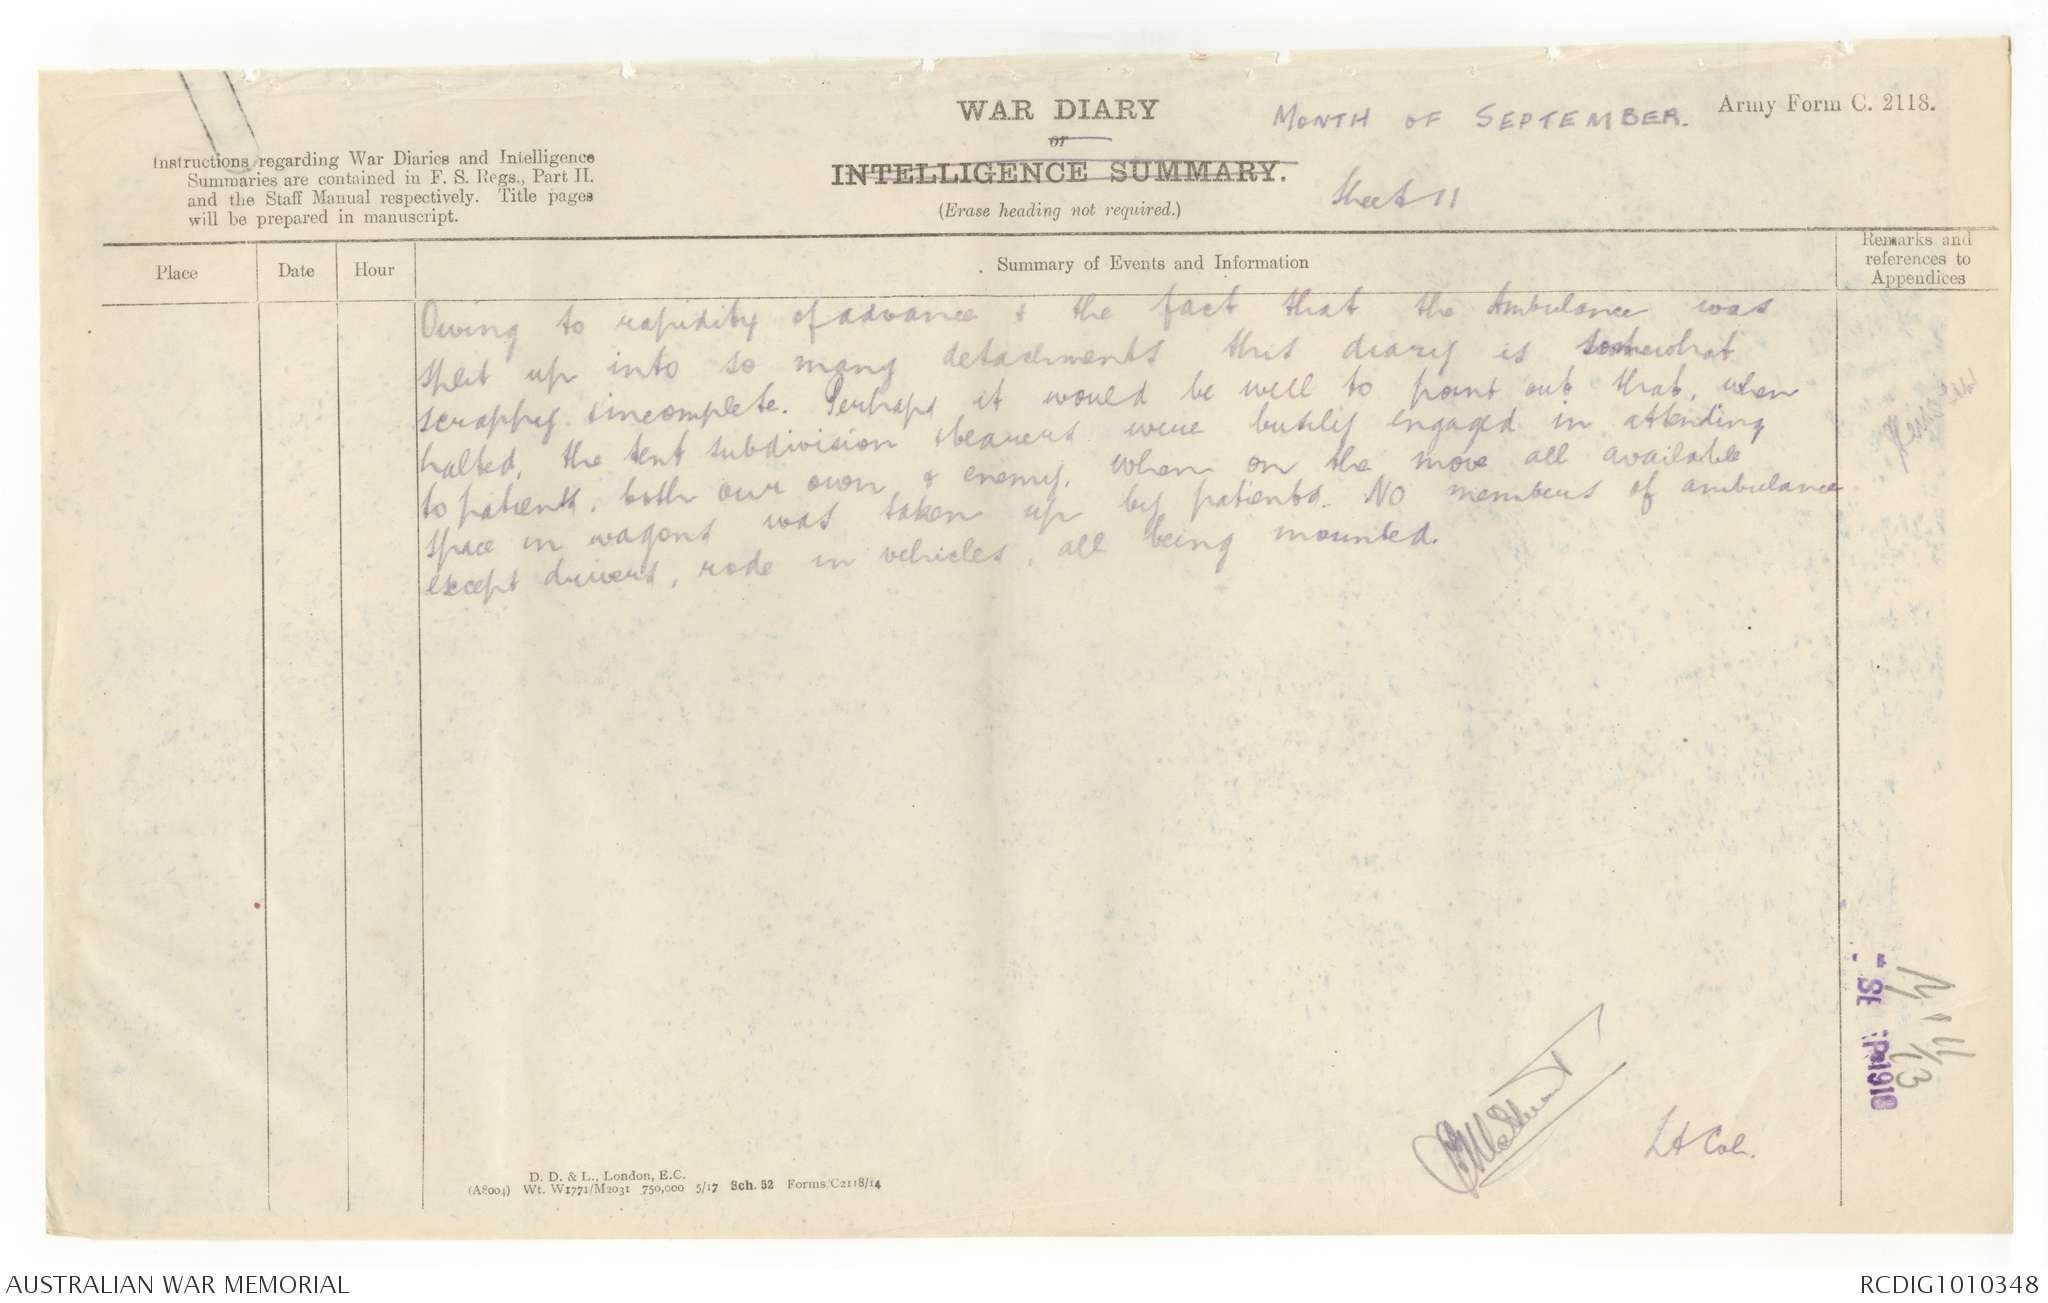 WAR DIARY
or
INTELLIGENCE SUMMARY.
(Erase heading not required.)
MONTH OF SEPTEMBER.
Sheet 11
Army Form C. 2118.
Instructions regarding War Diaries and Intelligence
Summaries are contained in F. S. Regs., Part II.
and the Staff Manual respectively. Title pages
will be prepared in manuscript.
Place
Date
Hour
Summary of Events and Information
Remarks and
references to
Appendices
Owing to rapidity of advance & the fact that the Ambulance was
split up into so many detachments this diary is somewhat
scrappy & incomplete. Perhaps it would be well to point out that, when
halted, the tent subdivision & bearers were busily engaged in attending
to patients, both our own & enemy, when on the move all available
space in wagons was taken up by patients. No members of ambulance
except drivers, rode in vehicles, all being mounted.
Lt Col.
D. D. & L., London, E.C.
(A8004) Wt. W1771/M2031 750,000 5/17 Sch. 52 Forms/C2118/14
AUSTRALIAN WAR MEMORIAL
RCDIG1010348